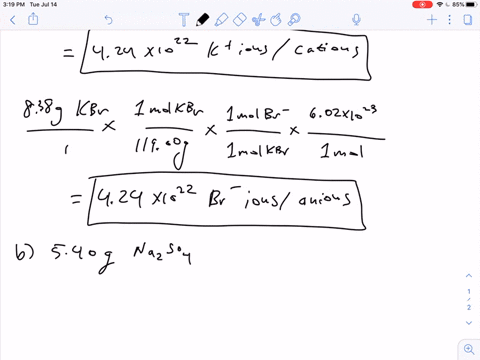 3:19 PM Tue Jul 14
85%
= 4.24 x10^22 K+ ions/cations
8.38g KBr / 1 x 1molKBr / 119.00g x 1molBr- / 1molKBr x 6.02x10^23 / 1mol
= 4.24 x10^22 Br- ions/anions
b) 5.40g Na2SO4
1
/
2